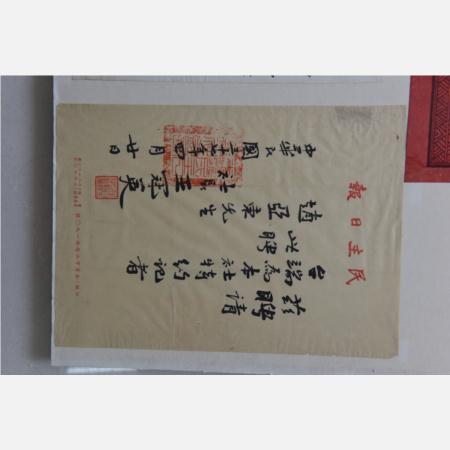 民主日報
茲聘請
台端為本社特約記者
此聘
趙亞東先生
社長王
中華民國三十七年四月廿日